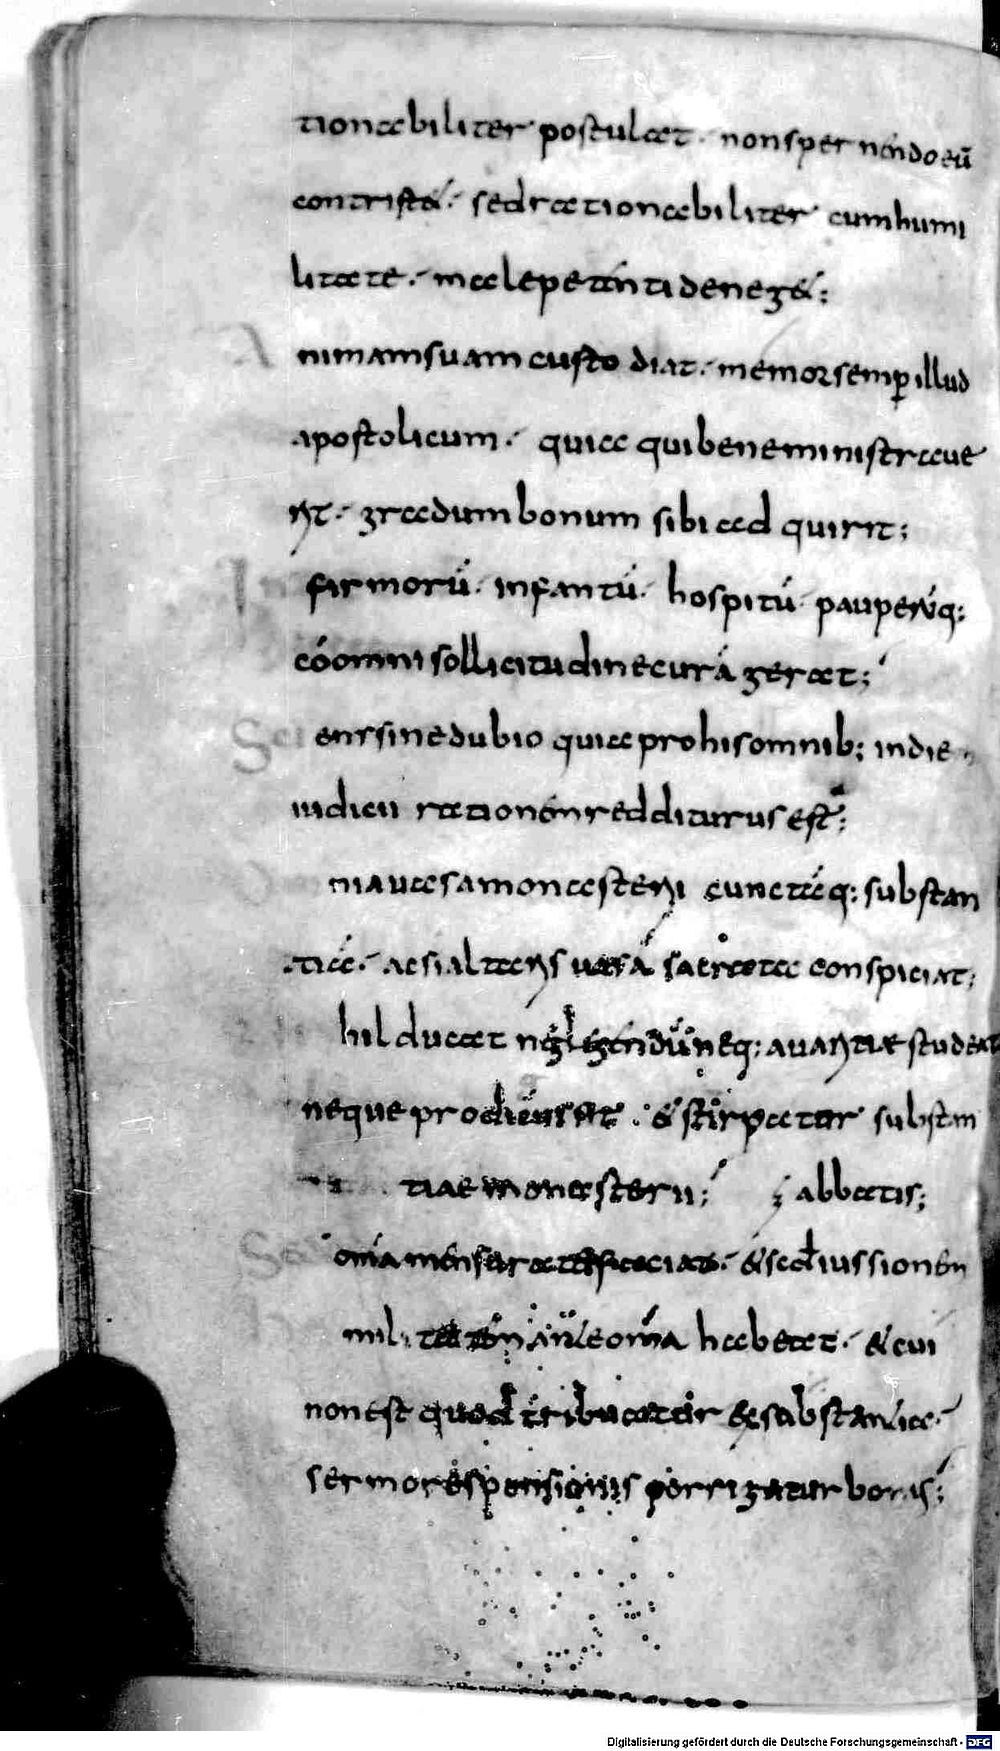 tionabiliter postulat · non spernendo eū
contrist& · sed rationabiliter cum humi
litate · male petenti deneg& ;
Animam suam custodiat · memor semp illud
apostolicum · quia qui bene ministrave
rit · gradum bonum sibi adquirit ;
Infirmorū · infantū · hospitū · pauperūq:
cū omni sollicitudine curā gerat ;
Sciens sine dubio quia pro his omnib; in die
iudicii rationem redditurus est ;
nia vasa monasterii cunctāq: substan
tiā · ac si altaris vasa sacrata conspiciat ;
hil ducat neglegendū neq: avaritiae studeat
neque prodi · & stirpator substan
tiae monasterii ; abbatis ;
omīa mensurate faciat · & secd iussionem
militatem ante omīa habeat · & cui
non est quod tribuatur substantia ·
sermo responsionis porrigatur bonus ;
Digitalisierung gefördert durch die Deutsche Forschungsgemeinschaft - DFG